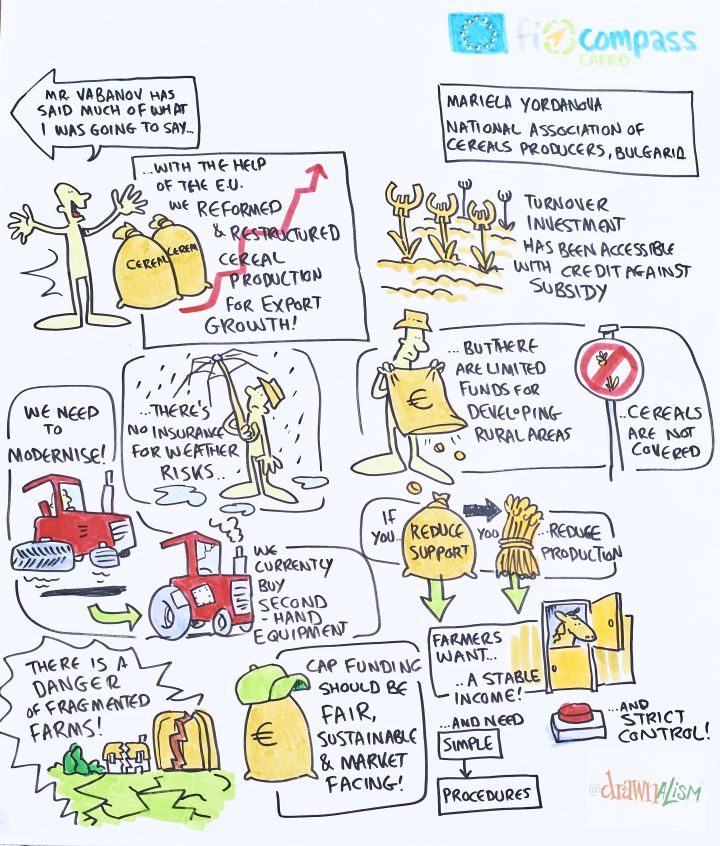 fi compass
EAFRD
MR. VABANOV HAS
SAID MUCH OF WHAT
I WAS GOING TO SAY...
MARIELA YORDANOVA
NATIONAL ASSOCIATION OF
CEREALS PRODUCERS, BULGARIA
...WITH THE HELP
OF THE E.U.
WE REFORMED
& RESTRUCTURED
CEREAL
PRODUCTION
FOR EXPORT
GROWTH!
CEREAL
CEREAL
TURNOVER
INVESTMENT
HAS BEEN ACCESSIBLE
WITH CREDIT AGAINST
SUBSIDY
...BUT THERE
ARE LIMITED
FUNDS FOR
DEVELOPING
RURAL AREAS
€
...CEREALS
ARE NOT
COVERED
...THERE'S
NO INSURANCE
FOR WEATHER
RISKS..
WE NEED
TO
MODERNISE!
WE
CURRENTLY
BUY
SECOND
-HAND
EQUIPMENT
IF
YOU...
REDUCE
SUPPORT
YOU
...REDUCE
PRODUCTION
THERE IS A
DANGER
OF FRAGMENTED
FARMS!
€
CAP FUNDING
SHOULD BE
FAIR,
SUSTAINABLE
& MARKET
FACING!
FARMERS
WANT...
..A STABLE
INCOME!
...AND NEED
SIMPLE
PROCEDURES
...AND
STRICT
CONTROL!
@drawnALISM